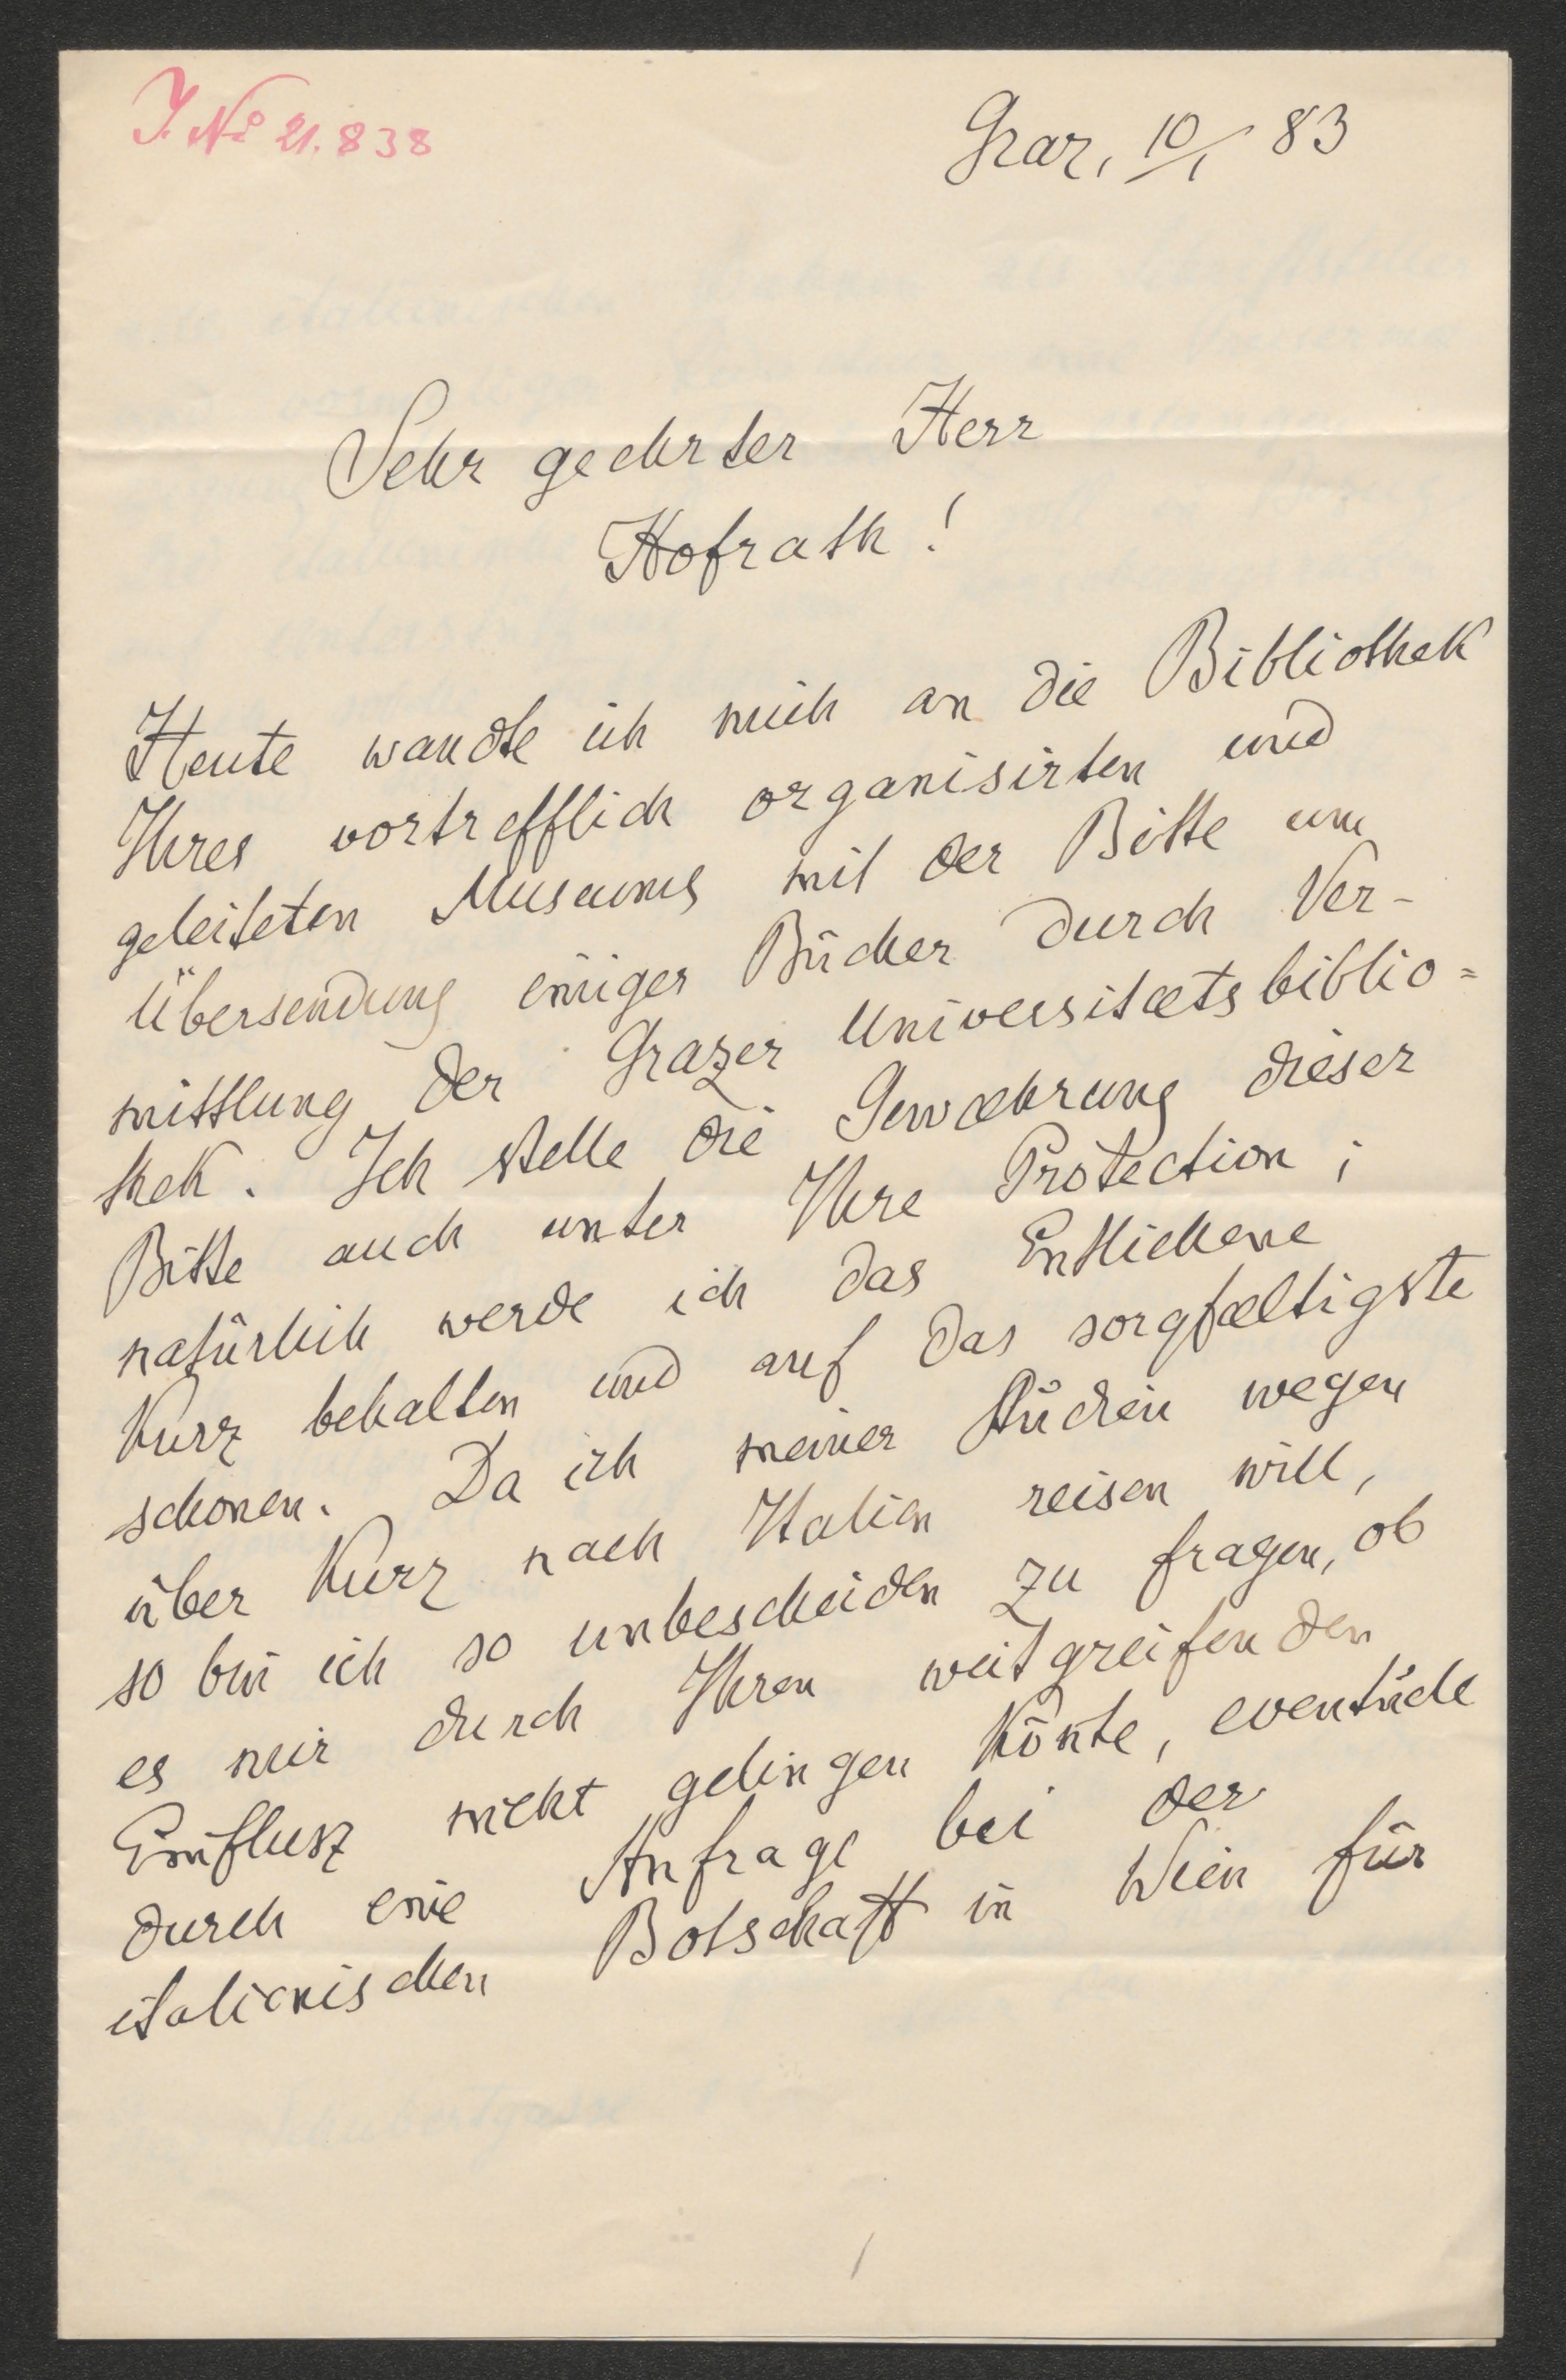 J. No 21.838
Graz, 10/1 83
Sehr geehrter Herr
Hofrath!
Heute wandte ich mich an die Bibliothek
Ihres vortrefflich organisirten und
geleiteten Museums mit der Bitte um
Übersendung einiger Bücher durch Ver-
mittlung der Grazer Universitætsbiblio=
thek. Ich stelle die Gewæhrung dieser
Bitte auch unter Ihre Protection;
natürlich werde ich das Entliehene
Kurz behalten und auf das sorgfæltigste
schonen. Da ich meiner Studien wegen
über Kurz nach Italien reisen will,
so bin ich so unbescheiden zu fragen, ob
es mir durch Ihren weitgreifenden
Einflusz nicht gelingen Kön̄te, eventuele
durch eine Anfrage bei der
italienischen Botschaft in Wien für
1